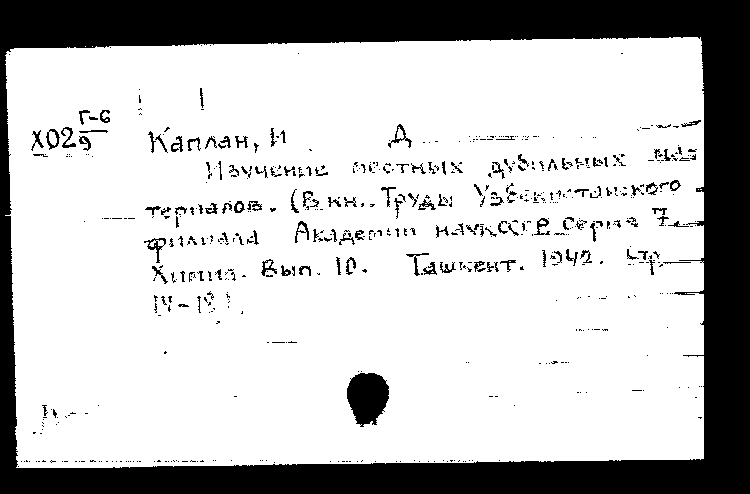 Х02 Г-6
9
Каплан, И Д
Изучение местных дубильных ма-
териалов. (В кн.. Труды Узбекистанского
филиала Академии наук СССР серия 7.
Химия. Вып. 10. Ташкент. 1942. стр.
14-18).